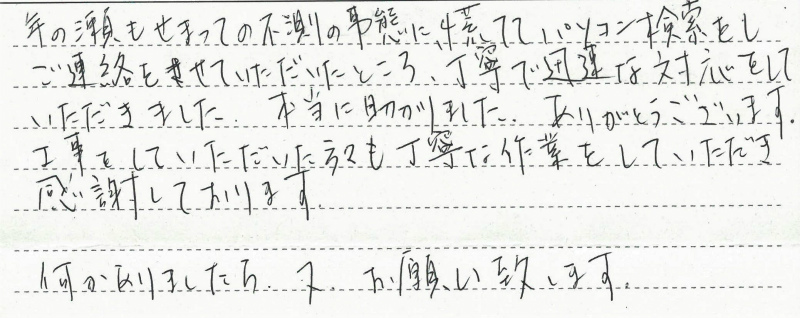 年の瀬もせまっての不測の事態に、慌ててパソコン検索をし
ご連絡をさせていただいたところ、丁寧で迅速な対応をして
いただきました。本当に助かりました。ありがとうございます。
工事をしていただいた方も丁寧な作業をしていただき
感謝しております。
何かありましたら、又、お願い致します。